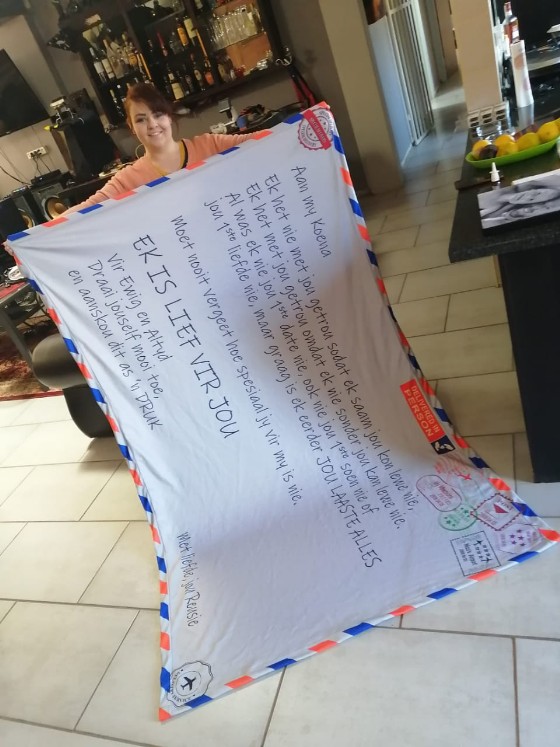 Aan my Koena
Ek het nie met jou getrou sodat ek saam jou kan lewe nie,
Ek het met jou getrou omdat ek nie sonder jou kan lewe nie.
Al was ek nie jou 1ste date nie, ook nie jou 1ste soen nie of
jou 1ste liefde nie, maar graag is ek eerder JOU LAASTE ALLES
Moet nooit vergeet hoe spesiaal jy vir my is nie.
EK IS LIEF VIR JOU
Vir Ewig en Altyd
Draai jouself mooi toe,
en aanskou dit as 'n DRUK
Met liefde, jou Rensie
DELIVERED IN
PERSON